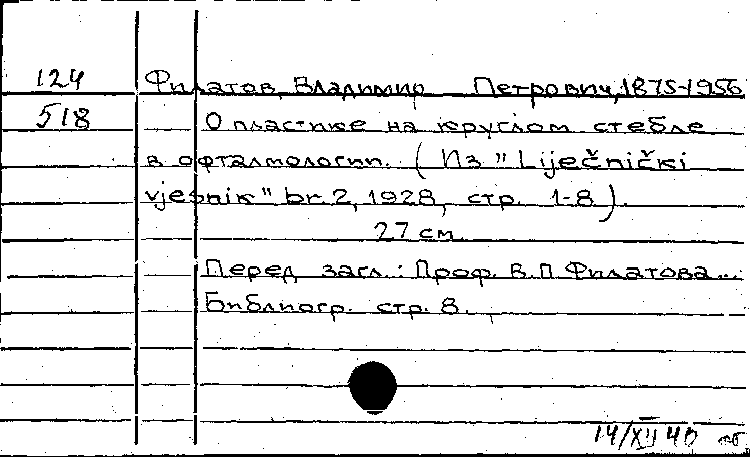 124 Филатов, Владимир Петрович, 1875-1956
518 О пластике на круглом стебле
в офталмологии. (Из "Liječnički
vjesnik" br. 2, 1928, стр. 1-8).
27 см
Перед загл.: Проф. В.П. Филатова...
Библиогр. стр. 8.
14/XII 40